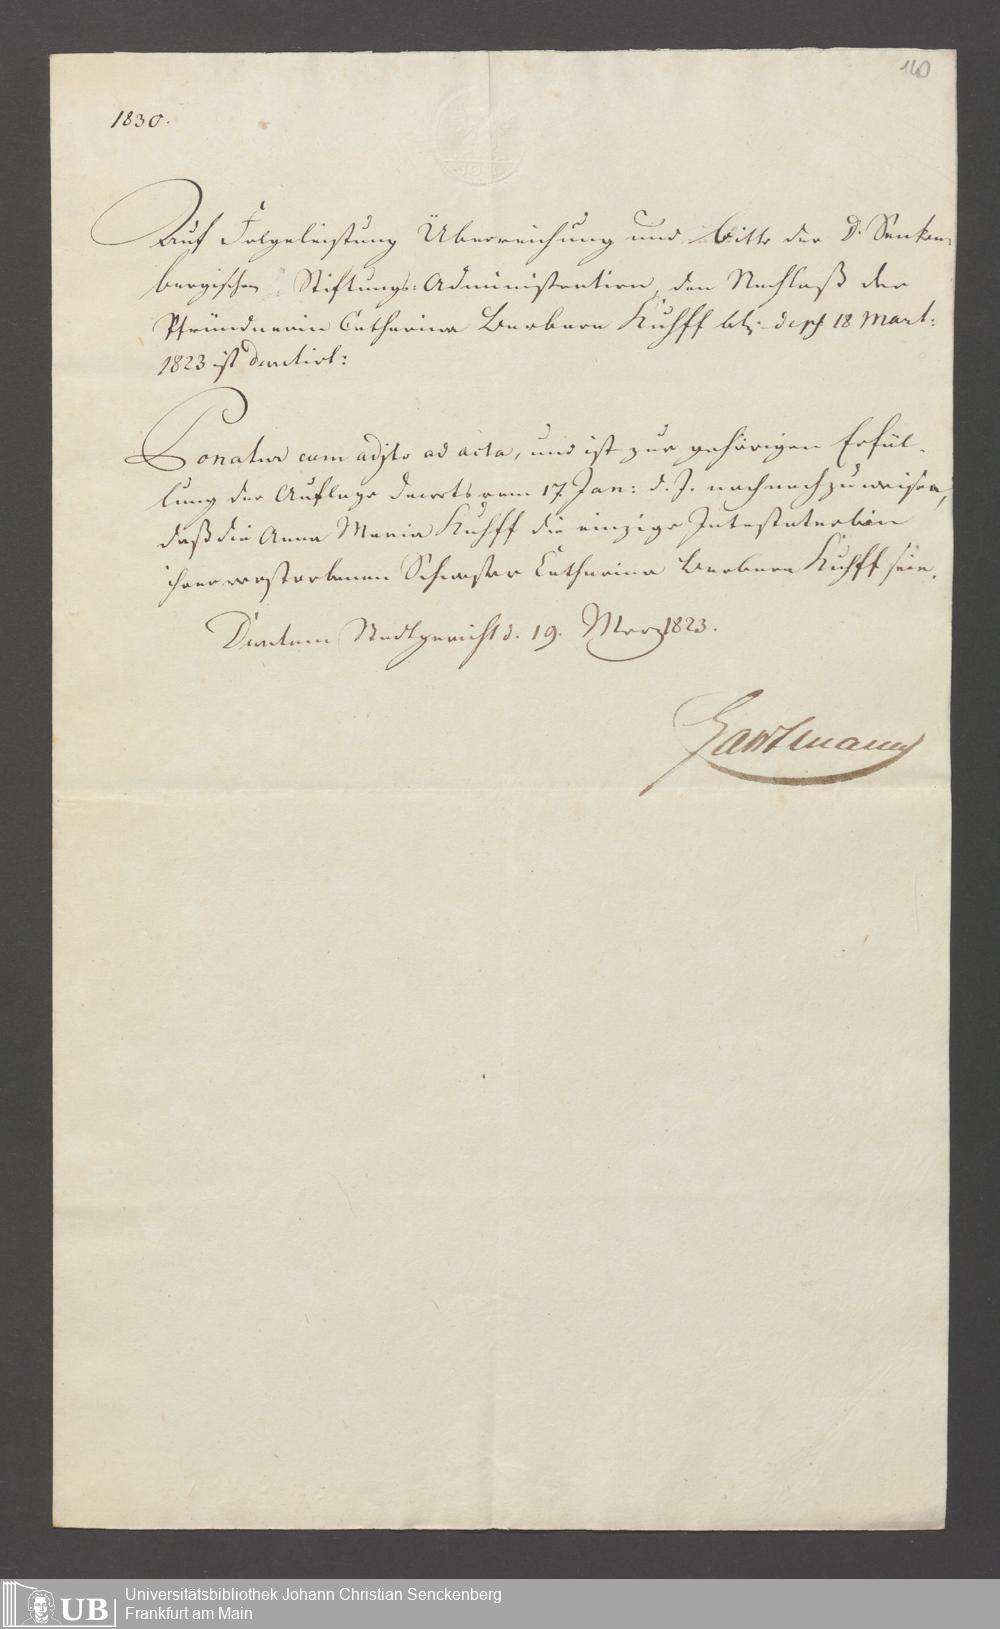 140
1830.
Auf Folgeleistung Überreichung und Bitte der D. Senken-
bergischen Stiftungs-Administration, den Nachlaß der
Pfründnerin Catharina Barbara Kuhff btr. 18 Mart:
1823 ist decretirt:
Ponatur cum adjto ad acta, und ist zur gehörigen Erfül-
lung der Auflage Decrets vom 17 Jan: d. J. noch nachzuweisen,
daß die Anna Maria Kuhff die einzige Intestaterbin
ihrer verstorbenen Schwester Catharina Barbara Kuhff seie.
Decretum Stadtgericht d. 19. Merz 1823.
Hartmann
UB
Universitätsbibliothek Johann Christian Senckenberg
Frankfurt am Main